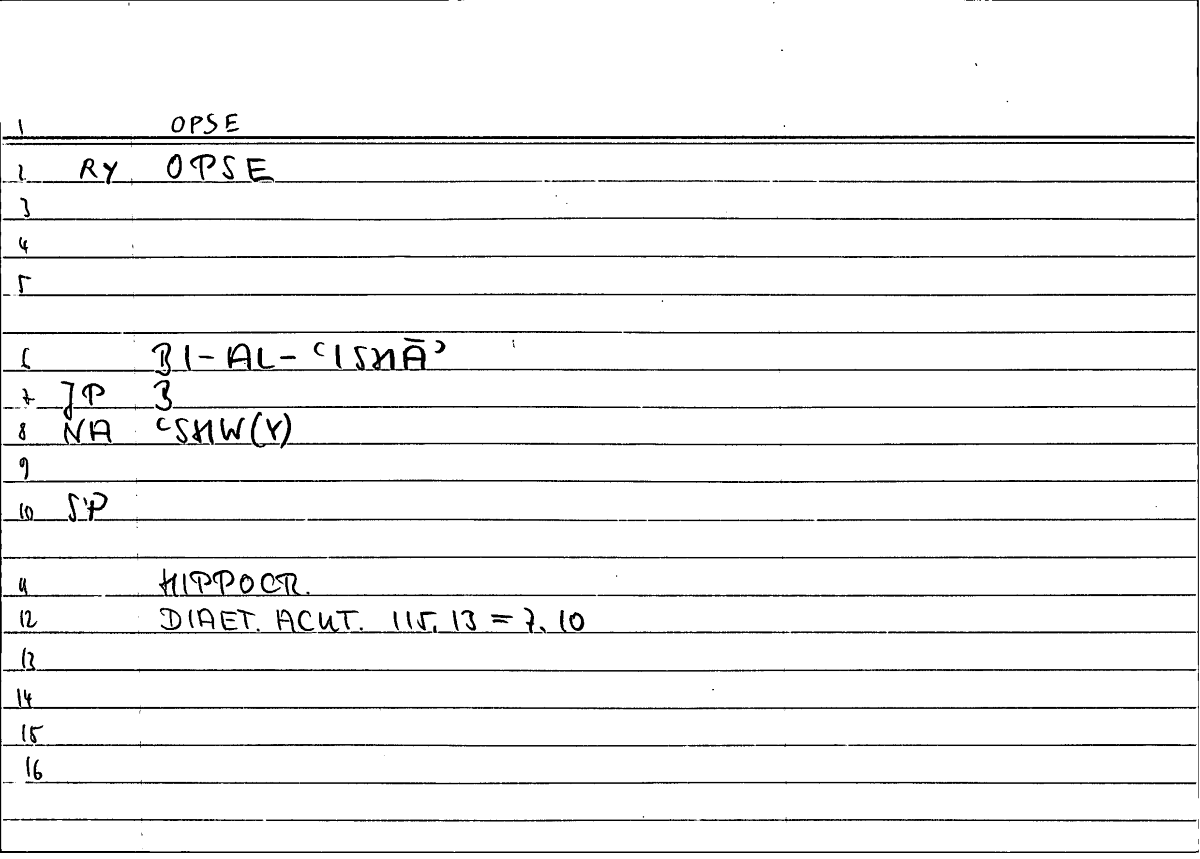 1 OPSE
2 RY OPSE
3
4
5
6 BI-AL-ʿISHĀʾ
7 JP B
8 NA ʿSHW(Y)
9
10 SP
11 HIPPOCR.
12 DIAET. ACUT. 115,13 = 7,10
13
14
15
16